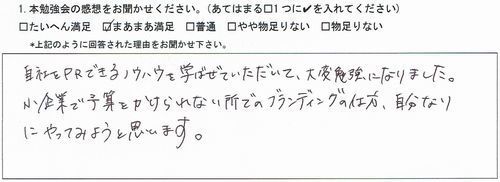 1. 本勉強会の感想をお聞かせください。(あてはまる□1つに✔を入れてください)
□たいへん満足 ☑まあまあ満足 □普通 □やや物足りない □物足りない
*上記のように回答された理由をお聞かせ下さい。
自社をPRできるノウハウを学ばせていただいて、大変勉強になりました。
小企業で予算をかけられない所でのブランディングの仕方、自分なり
にやってみようと思います。